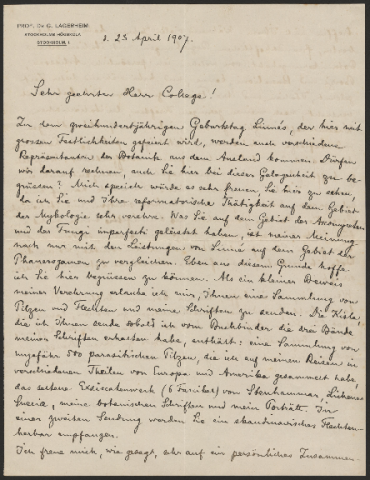 PROF. Dr G. LAGERHEIM
STOCKHOLMS HÖGSKOLA
STOCKHOLM, 1.
d. 23 April 1907.
Sehr geehrter Herr College!
Zu dem zweihundertjährigen Geburtstag Linnés, der hier mit
grossen Festlichkeiten gefeiert wird, werden auch verschiedene
Repräsentanten der Botanik aus dem Ausland kommen. Dürfen
wir darauf rechnen, auch Sie hier bei dieser Gelegenheit zu be-
grüssen? Mich speciell würde es sehr freuen, Sie hier zu sehen,
da ich Sie und Ihre reformatorische Thätigkeit auf dem Gebiet
der Mykologie sehr verehre. Was Sie auf dem Gebiet der Ascomyceten
und der Fungi imperfecti geleistet haben, ist meiner Meinung
nach nur mit den Leistungen von Linné auf dem Gebiet der
Phanerogamen zu vergleichen. Eben aus diesem Grunde hoffe
ich Sie hier begrüssen zu können. Als ein kleiner Beweis
meiner Verehrung erlaube ich mir, Ihnen eine Sammlung von
Pilzen und Flechten und meine Schriften zu senden. Die Kiste,
die ich Ihnen sende sobald ich vom Buchbinder die drei Bände
meiner Schriften erhalten habe, enthält: eine Sammlung von
ungefähr 500 parasitischen Pilzen, die ich auf meinen Reisen in
verschiedenen Theilen von Europa und Amerika gesammelt habe,
das seltene Exsiccatenwerk (6 Fascikel) von Stenhammar, Lichenes
Sueciæ, meine botanischen Schriften und mein Porträt. In
einer zweiten Sendung werden Sie ein skandinavisches Flechten-
herbar empfangen.
Ich freue mich, wie gesagt, sehr auf ein persönliches Zusammen-